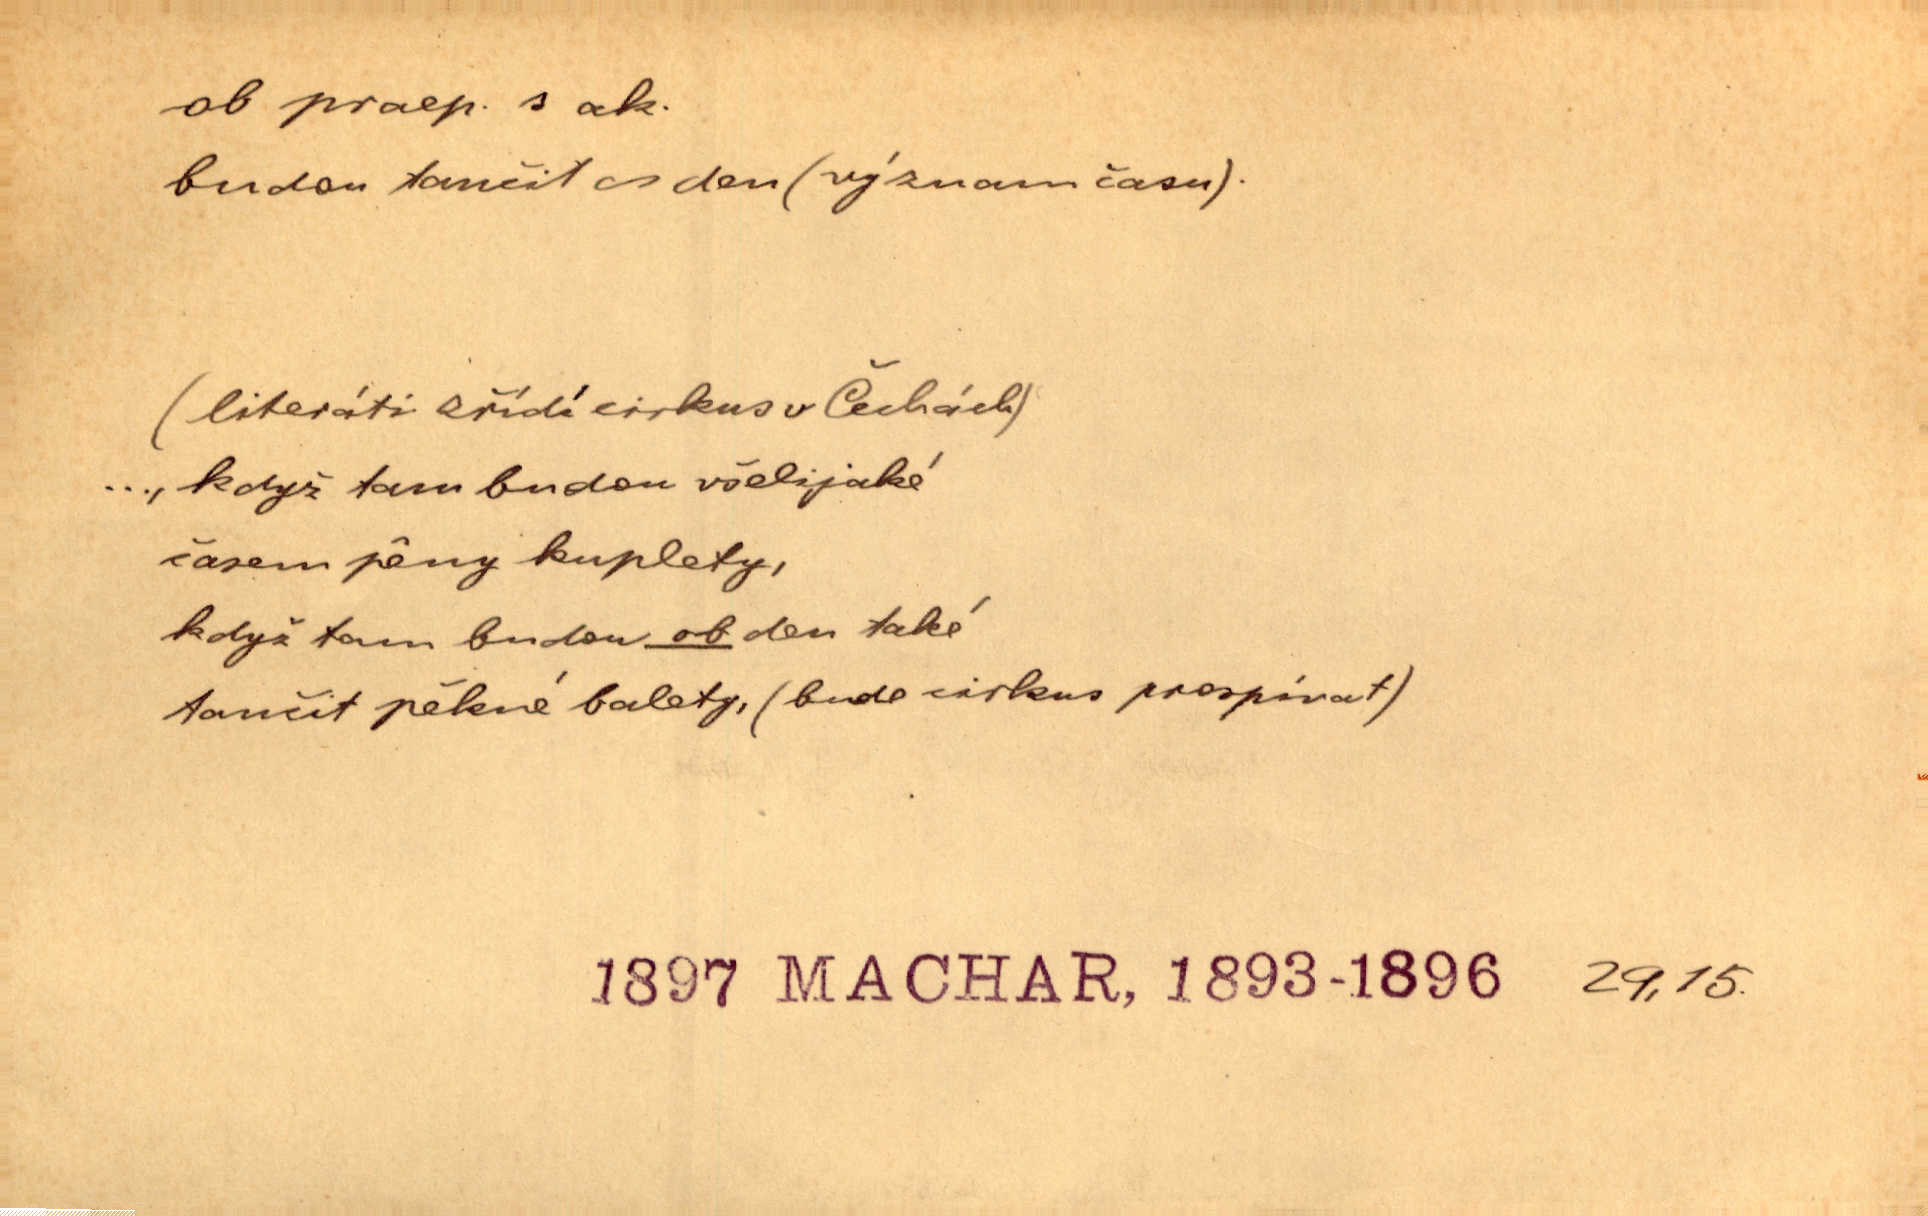 ob praep. s ak.
budou tančit ∾ den (význam času).
(literáti zřídí cirkus v Čechách)
..., když tam budou všelijaké
časem pěny kuplety,
když tam budou ob den také
tančit pěkné balety, (bude cirkus prospívat)
1897 MACHAR, 1893-1896 29,15.